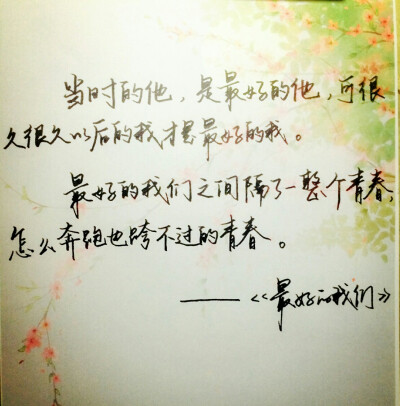 当时的他，是最好的他，可很
久很久以后的我才是最好的我。
最好的我们之间隔了一整个青春，
怎么奔跑也跨不过的青春。
——《最好的我们》